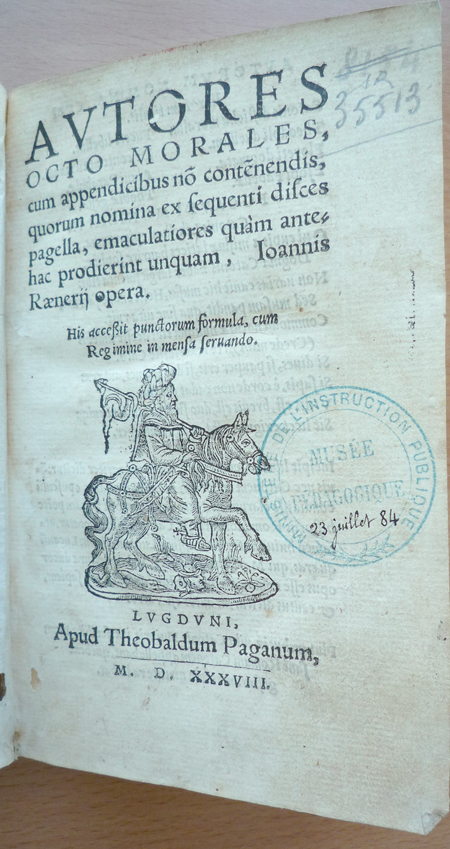 AVTORES
OCTO MORALES,
cum appendicibus nõ contẽnendis,
quorum nomina ex ſequenti diſces
pagella, emaculatiores quàm ante-
hac prodierint unquam, Ioannis
Rænerij opera.
His acceßit punctorum formula, cum
Regimine in menſa ſeruando.
LVGDVNI,
Apud Theobaldum Paganum,
M. D. XXXVIII.
35513
DE L'INSTRUCTION PUBLIQUE
MUSÉE
PÉDAGOGIQUE
23 juillet 84